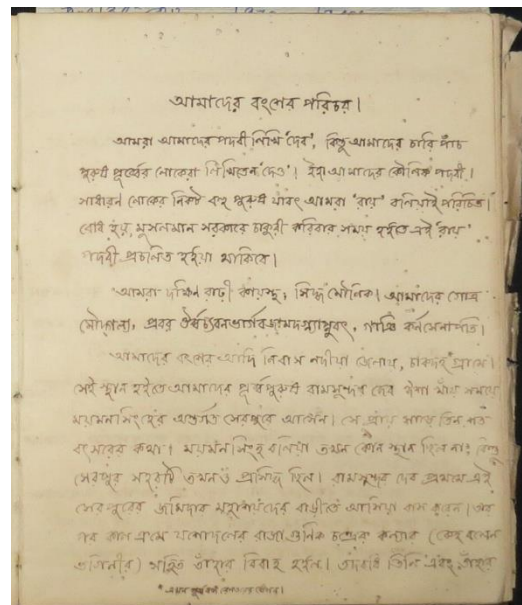 আমাদের বংশের পরিচয়।
আমরা আমাদের পদবী লিখি 'দেব', কিন্তু আমাদের চারি পাঁচ
পুরুষ পূর্ব্বের লোকেরা লিখিতেন 'দেও'। ইহা আমাদের কৌলিক পদবী।
সাধারণ লোকের নিকট বহু পুরুষ যাবৎ আমরা 'রায়' বলিয়াই পরিচিত।
বোধ হয় মুসলমান সরকারে চাকুরী করিবার সময় হইতে এই 'রায়'
পদবী প্রচলিত হইয়া থাকিবে।
আমরা দক্ষিণ রাঢ়ী কায়স্থ, সিদ্ধ মৌলিক। আমাদের গোত্র
মৌদ্গল্য, প্রবর ঔর্ব্বচ্যবনভার্গবজামদগ্ন্যাপ্নুবৎ, গাঞি কর্ণসেনাপতি।
আমাদের বংশের আদি নিবাস নদীয়া জেলায়, চাকদহ গ্রামে।
সেই স্থান হইতে আমাদের পূর্ব্বপুরুষ রামসুন্দর দেব ঈশা খাঁয় সময়ে
ময়মনসিংহের অন্তর্গত সেরপুরে আসেন। সে প্রায় সাড়ে তিন শত
বৎসরের কথা। ময়মনসিংহ বলিয়া তখন কোন স্থান ছিল না; কিন্তু
সেরপুর সহরটি তখনও প্রসিদ্ধ ছিল। রামসুন্দর দেব প্রথমে এই
সেরপুরের জমিদার মহাশয়দের বাড়ীতে আসিয়া বাস করেন। তার
পর কাল ক্রমে যশোদলের রাজা মানিক চন্দ্রের কন্যার (কেহ বলেন
ভগিনীর) সহিত তাঁহার বিবাহ হইল। তদবধি তিনি এবং তাঁহার